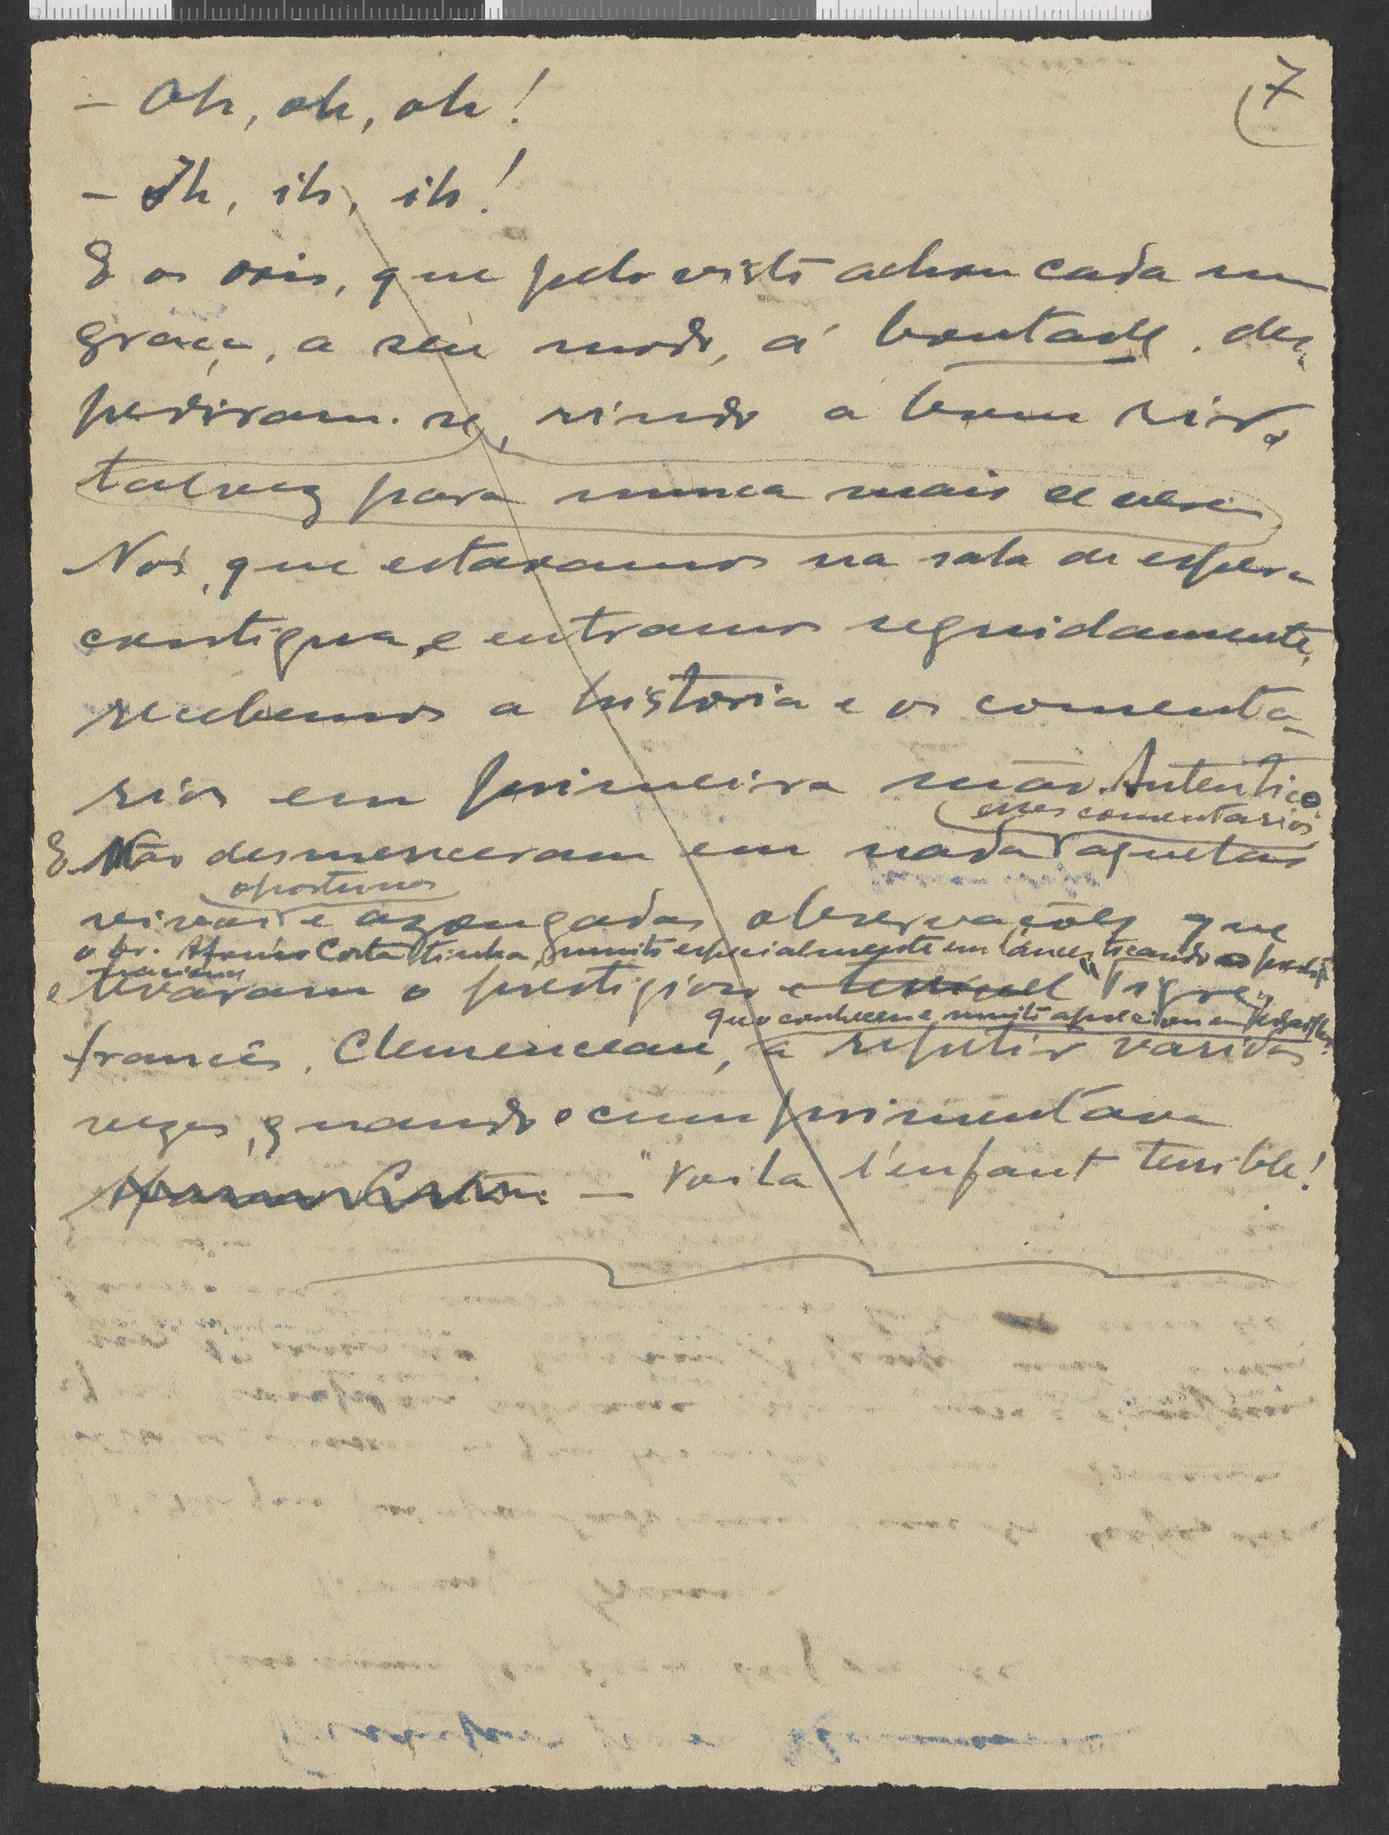 7
- Oh, oh, oh!
- Ih, ih, ih!
E os dois, que pelo visto achou cada um
graça, a seu modo, á boutade, des
pediram-se, rindo a bom rir,
talvez para nunca mais se ver
Nós, que estavamos na sala de espera
contigua, e entramos seguidamente,
recebemos a historia e os comenta-
rios em primeira mão. Autentico
esses comentarios
E Não desmereceram em nada aquelas
oportunas
vivas e azougadas observações que
o Dr. Afonso Costa tinha, muito especialmente em lances
e levaram o prestigioso e terrivel "Tigre"
que o conheceu e muito apreciou em
francês, Clemenceau, a repetir varias
vezes, quando o cumprimentava
Afonso Costa — "Voila l'enfant terrible!